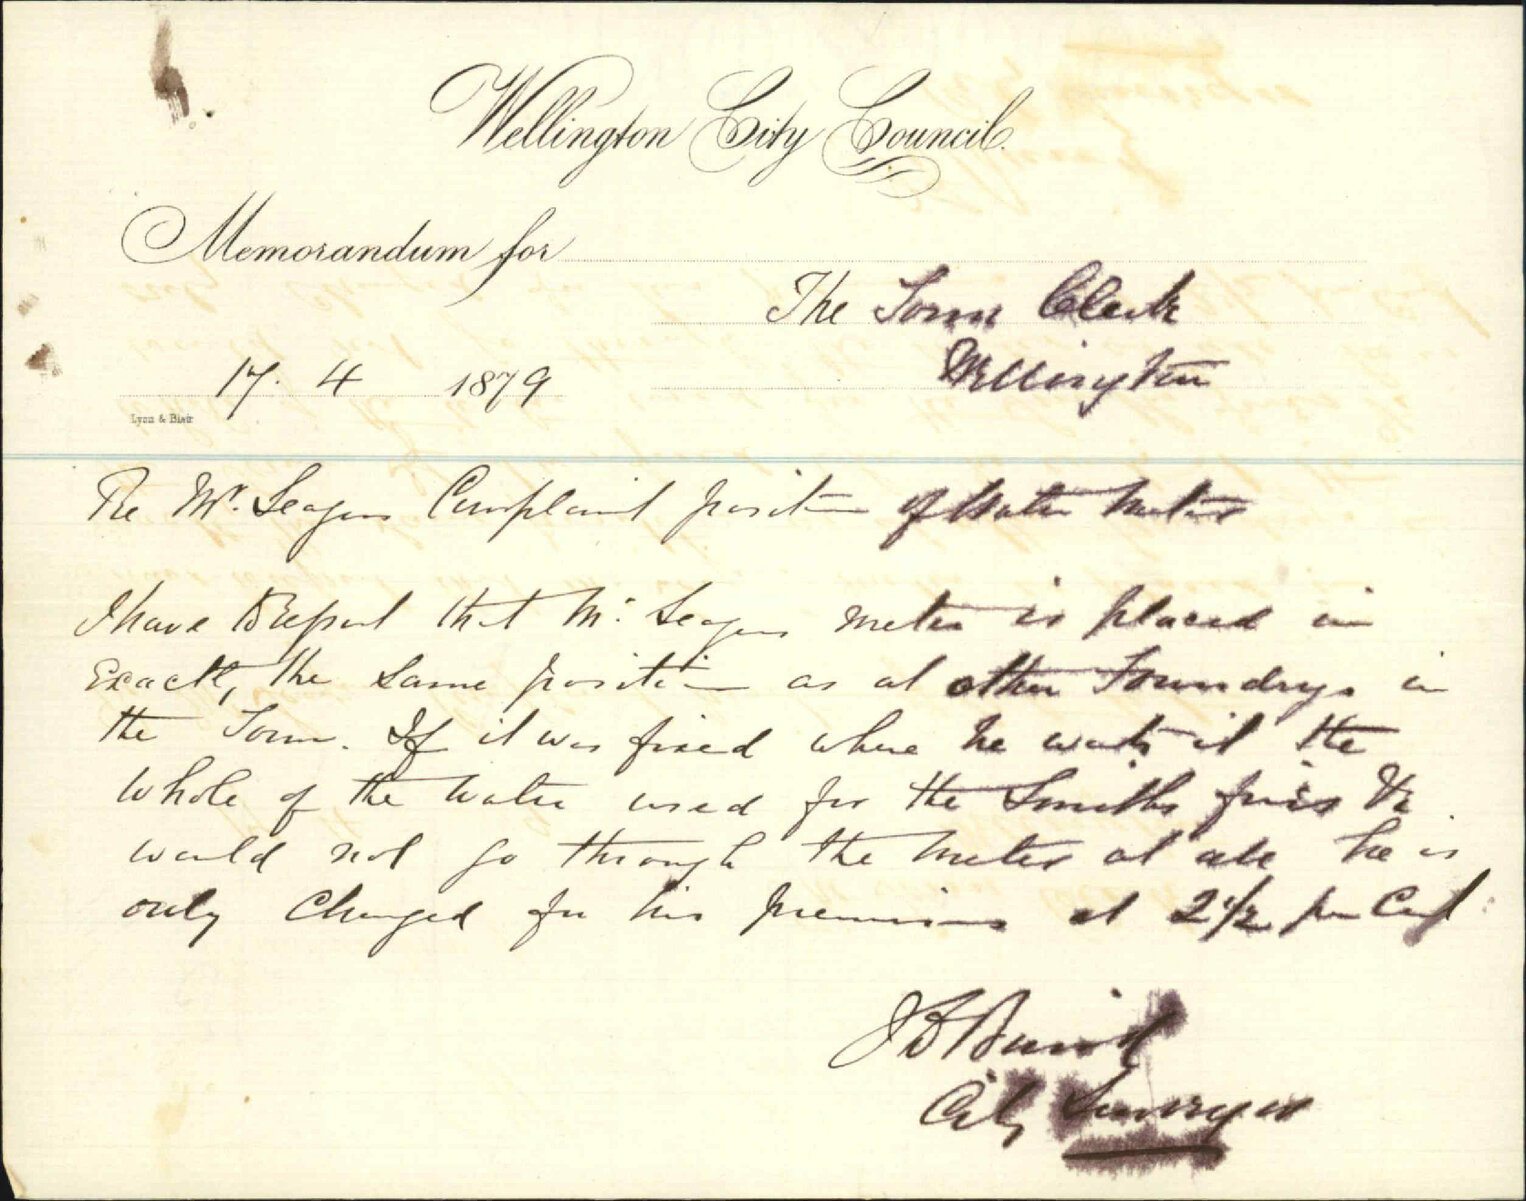 Wellington City Council.
Memorandum for
The Town Clerk
Wellington
17. 4 1879
Lyon & Blair
Re Mr. Seagers Complaint position of Water Meter
I have to Report that Mr. Seagers meter is placed in
Exactly the same position as at other Foundrys in
the Town. If it was fixed where he wants it the
whole of the water used for the Smiths fires &c
would not go through the meter at all he is
only Charged for his premises at 2 1/2 per Cent
J D Baird
City Surveyor